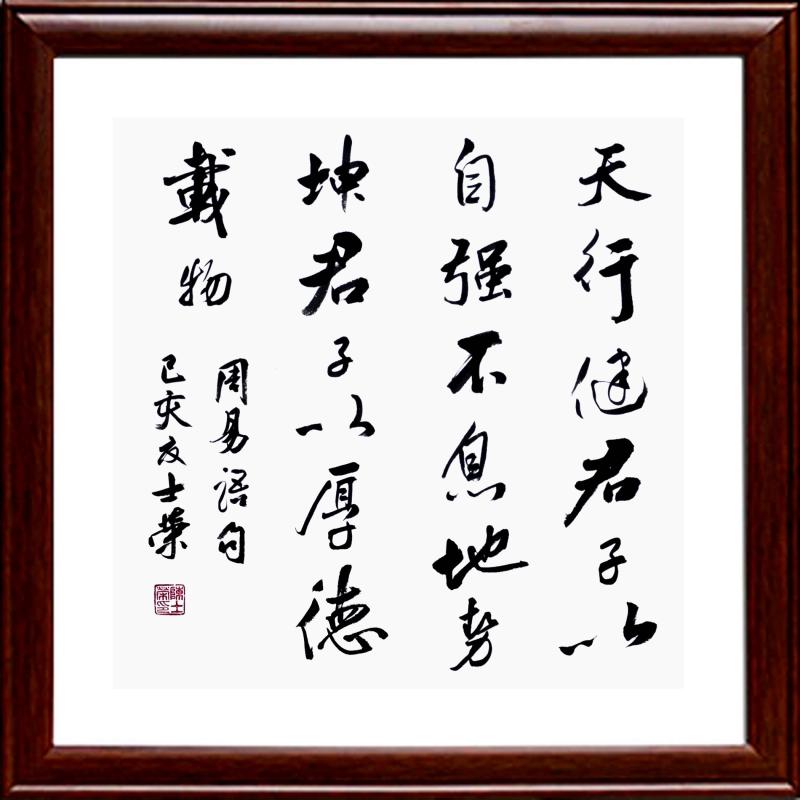 天行健君子以
自强不息地势
坤君子以厚德
載物
周易语句
己亥夏士榮
陳士榮印